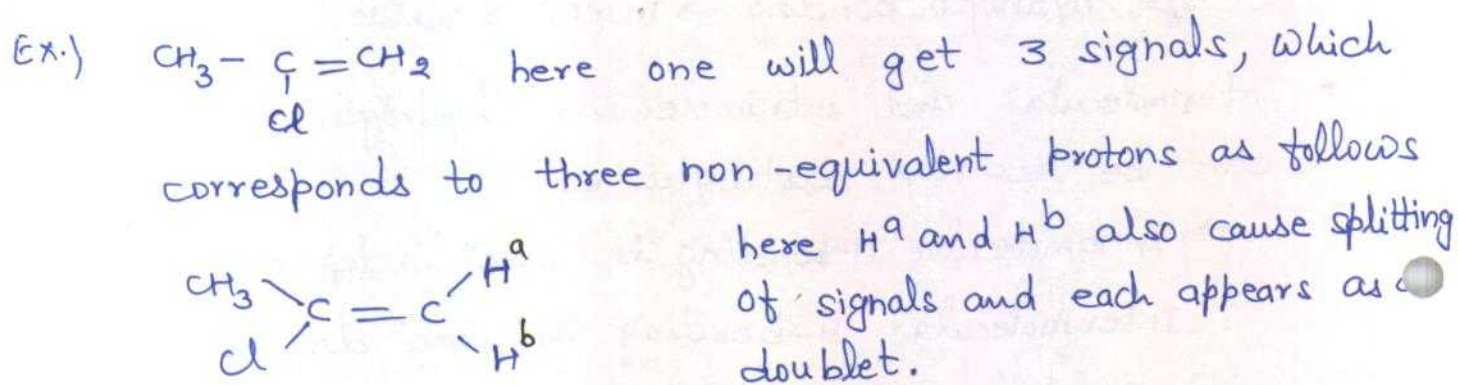 Ex.) CH3 - C = CH2 here one will get 3 signals, which
Cl
corresponds to three non-equivalent protons as follows
here Ha and Hb also cause splitting
of signals and each appears as
doublet.
CH3 Ha
C = C
Cl Hb